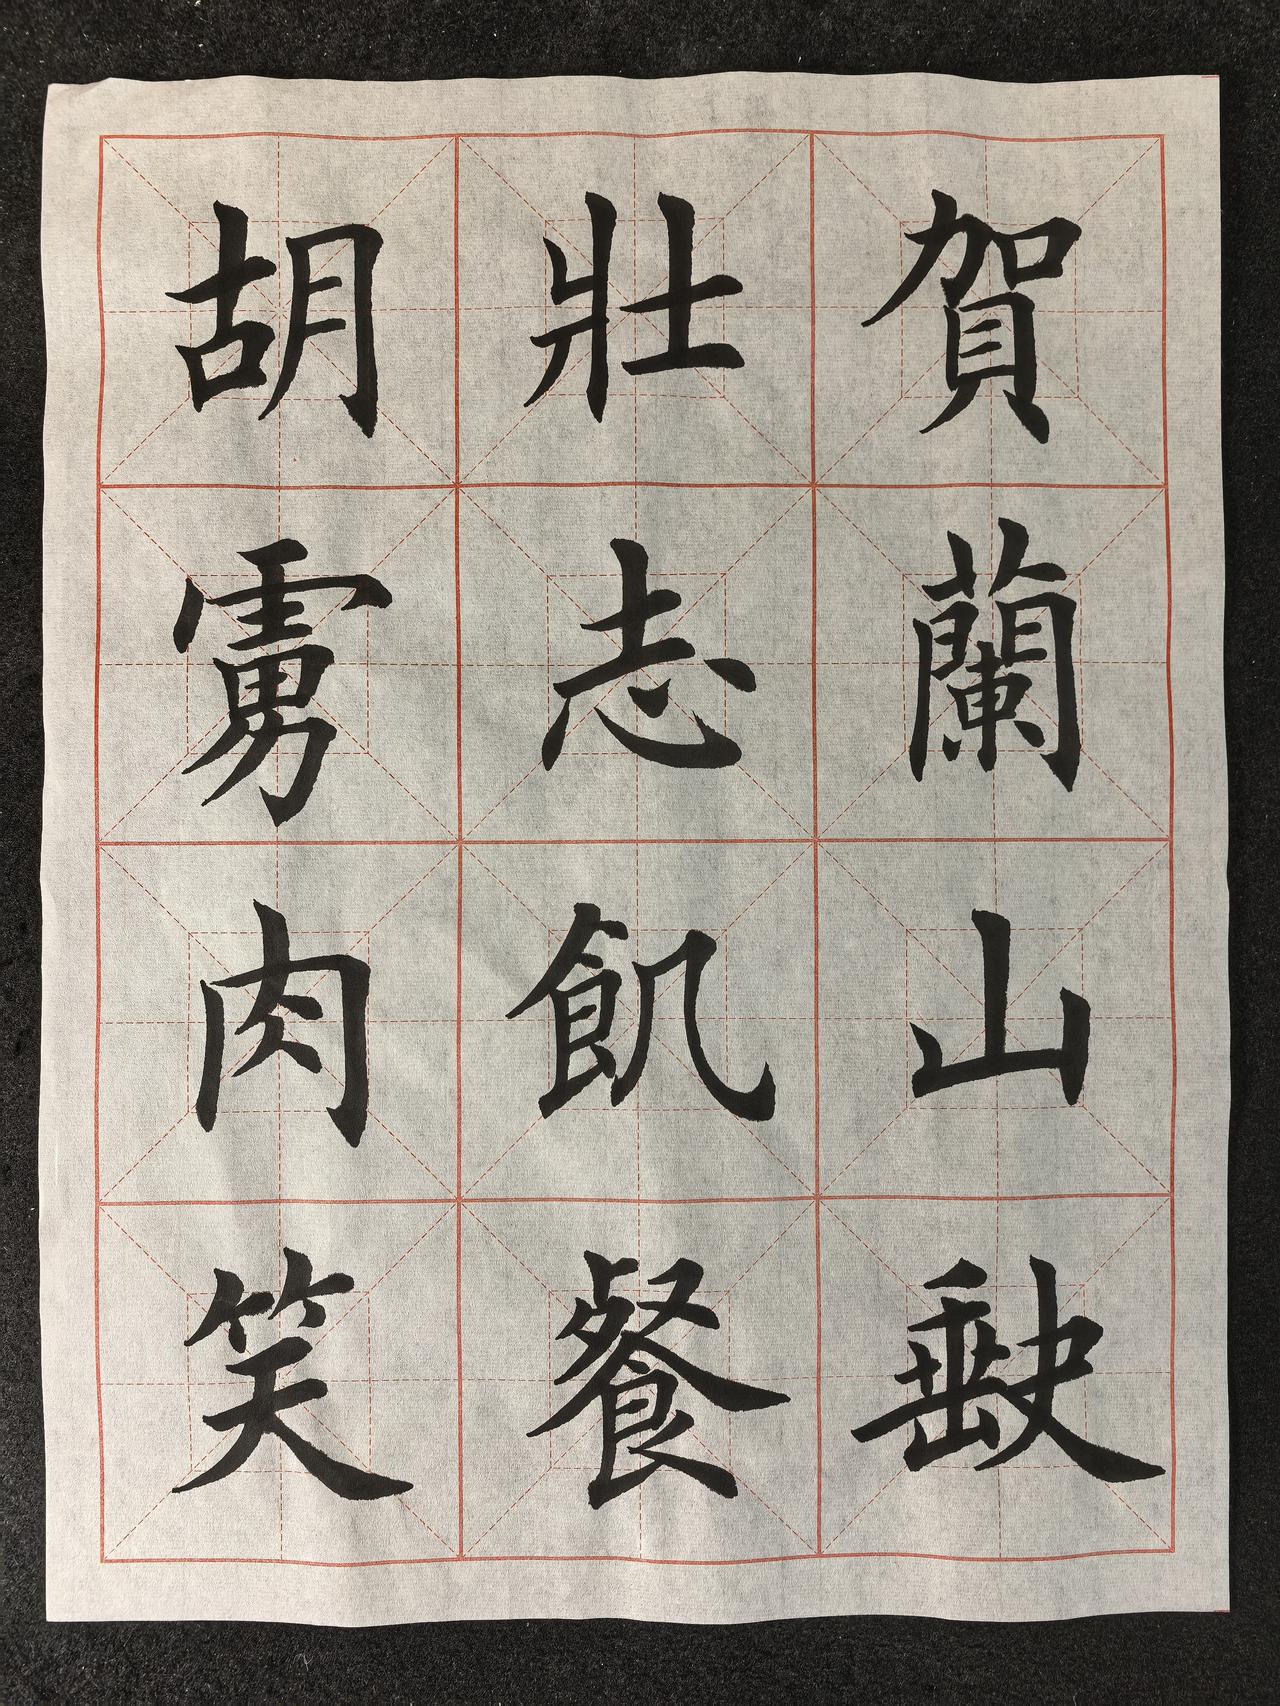 賀蘭山缺
壯志飢餐
胡虜肉笑